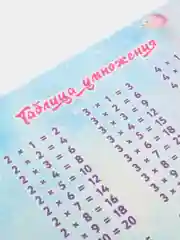 Таблица умножения
2 × 1 = 2
2 × 2 = 4
2 × 3 = 6
2 × 4 = 8
2 × 5 = 10
2 × 6 = 12
2 × 7 = 14
2 × 8 = 16
× 9 = 18
= 20
3 × 1 = 3
3 × 2 = 6
3 × 3 = 9
3 × 4 = 12
3 × 5 = 15
3 × 6 = 18
3 × 7 =
3 × 8 =
3 ×